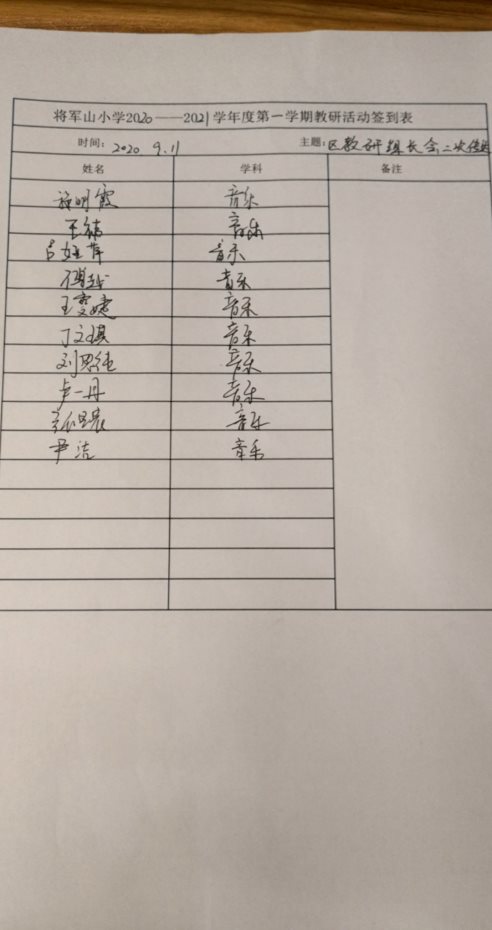 将军山小学2020——2021学年度第一学期教研活动签到表
时间：2020 9.11 主题：区教研组长会二次传达
姓名 学科 备注
施明霞 音乐
王倩 音乐
吕娅萍 音乐
音乐
王雯婕 音乐
丁文琪 音乐
刘思纯 音乐
卢一丹 音乐
音乐
尹洁 音乐